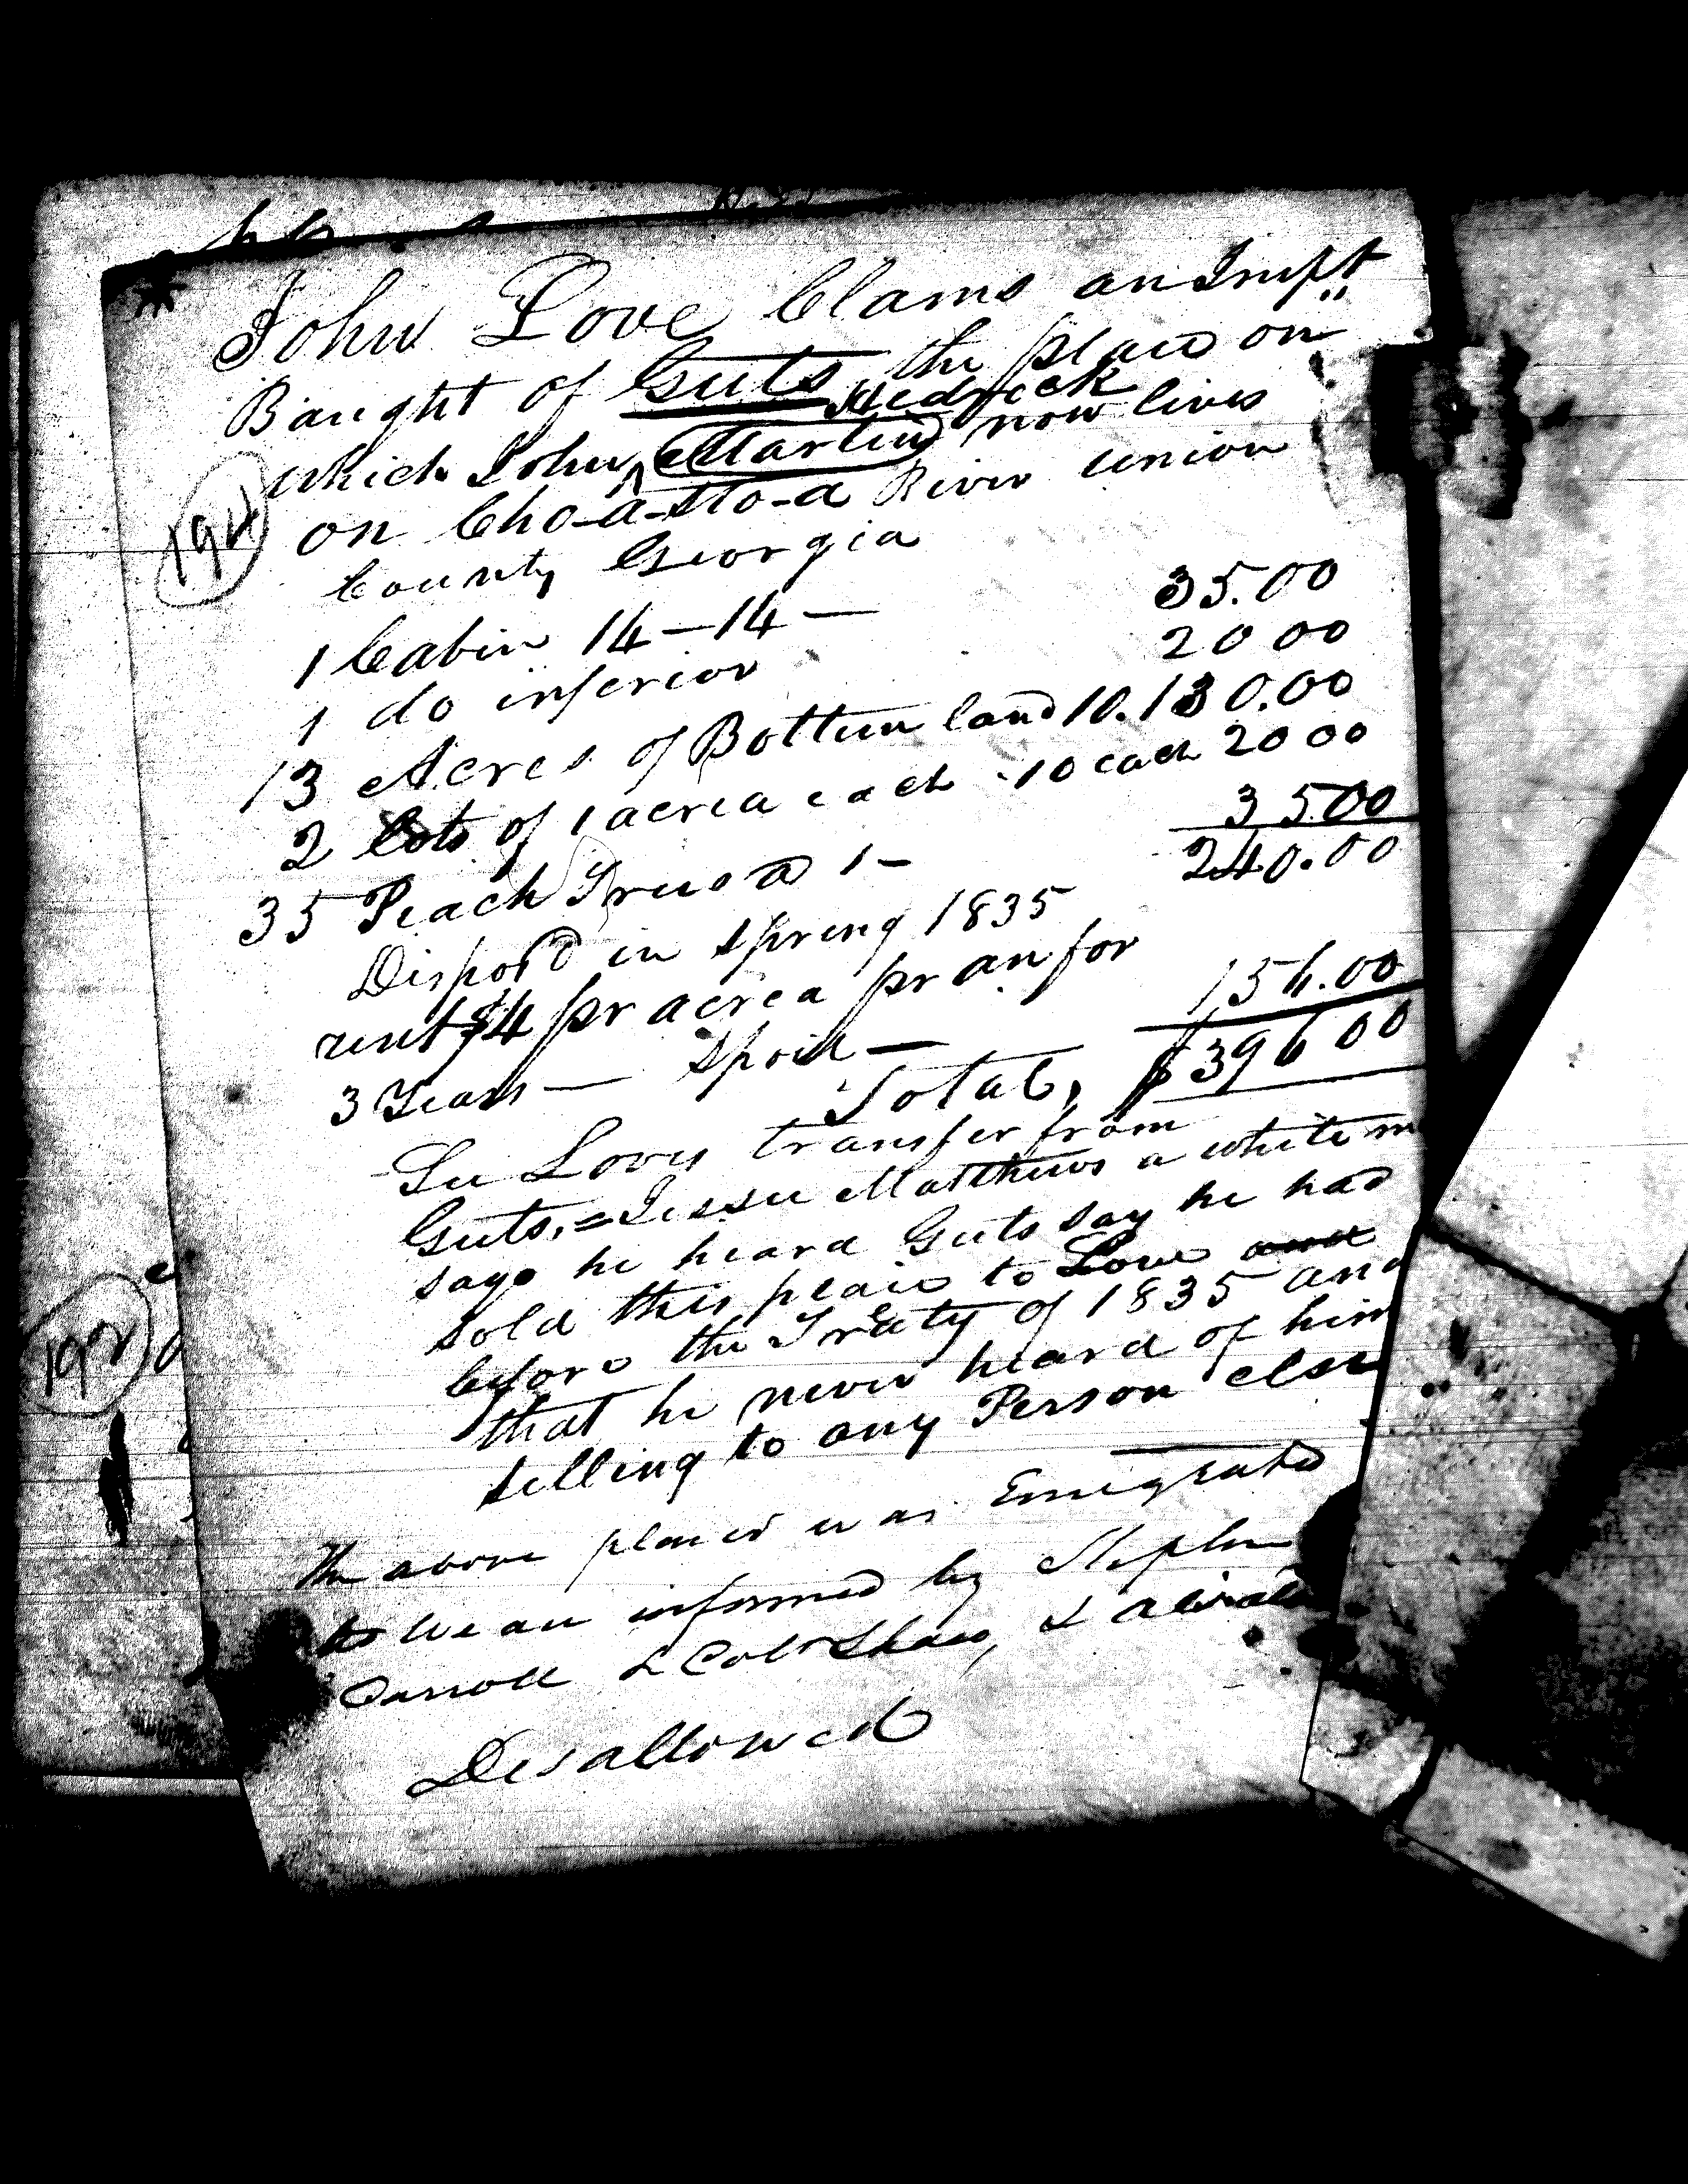 John Love Clams an Impt
Baught of Guts the plaio on
Hedrick
which John Martin now lives
on Cho-a-sto-a River union
County Georgia
194
1 Cabin 14 — 14 — 35.00
1 do inferior 20 00
13 Acres of Bottum land 10. 130.00
2 lots of 1 acrea each 10 each 20 00
35 Peach Trees @ 1 — 35.00
240.00
Dispos'd in spring 1835
rent $4 pr acrea pr an for
3 Years — Spoil — 156.00
Total, $396 00
See Loves transfer from
Guts, = Jessee Matthews a white m
says he heard Guts say he had
sold this plaio to Love and
before the Treaty of 1835 and
that he never heard of him
selling to any Person else
192
The above placed was Emigrated
as we are informed by Stephen
Carroll & Col Shaw, &
Desallowed